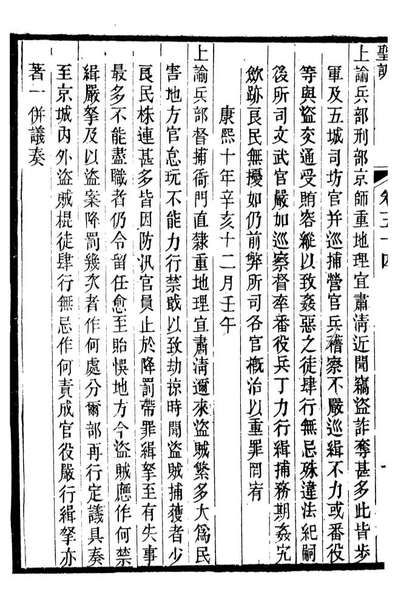 聖訓
卷五十四
上諭兵部刑部京師重地理宜肅清近聞竊盜詐奪甚多此皆步
軍及五城司坊官并巡捕營官兵稽察不嚴巡緝不力或番役
等與盜交通受賄容縱以致姦惡之徒肆行無忌殊違法紀嗣
後所司文武官嚴加巡察督率番役兵丁力行緝捕務期姦宄
斂跡良民無擾如仍前弊所司各官概治以重罪罔宥
康熙十年辛亥十二月壬午
上諭兵部督捕衙門直隸重地理宜肅清邇來盜賊繁多大為民
害地方官怠玩不能力行禁戢以致劫掠時聞盜賊捕獲者少
良民株連甚多皆因防汛官員止於降罰帶罪緝拏至有失事
最多不能盡職者仍令留任愈至貽悞地方今盜賊應作何禁
緝嚴拏及以盜案降罰幾次者作何處分爾部再行定議具奏
至京城內外盜賊棍徒肆行無忌作何責成官役嚴行緝拏亦
著一併議奏